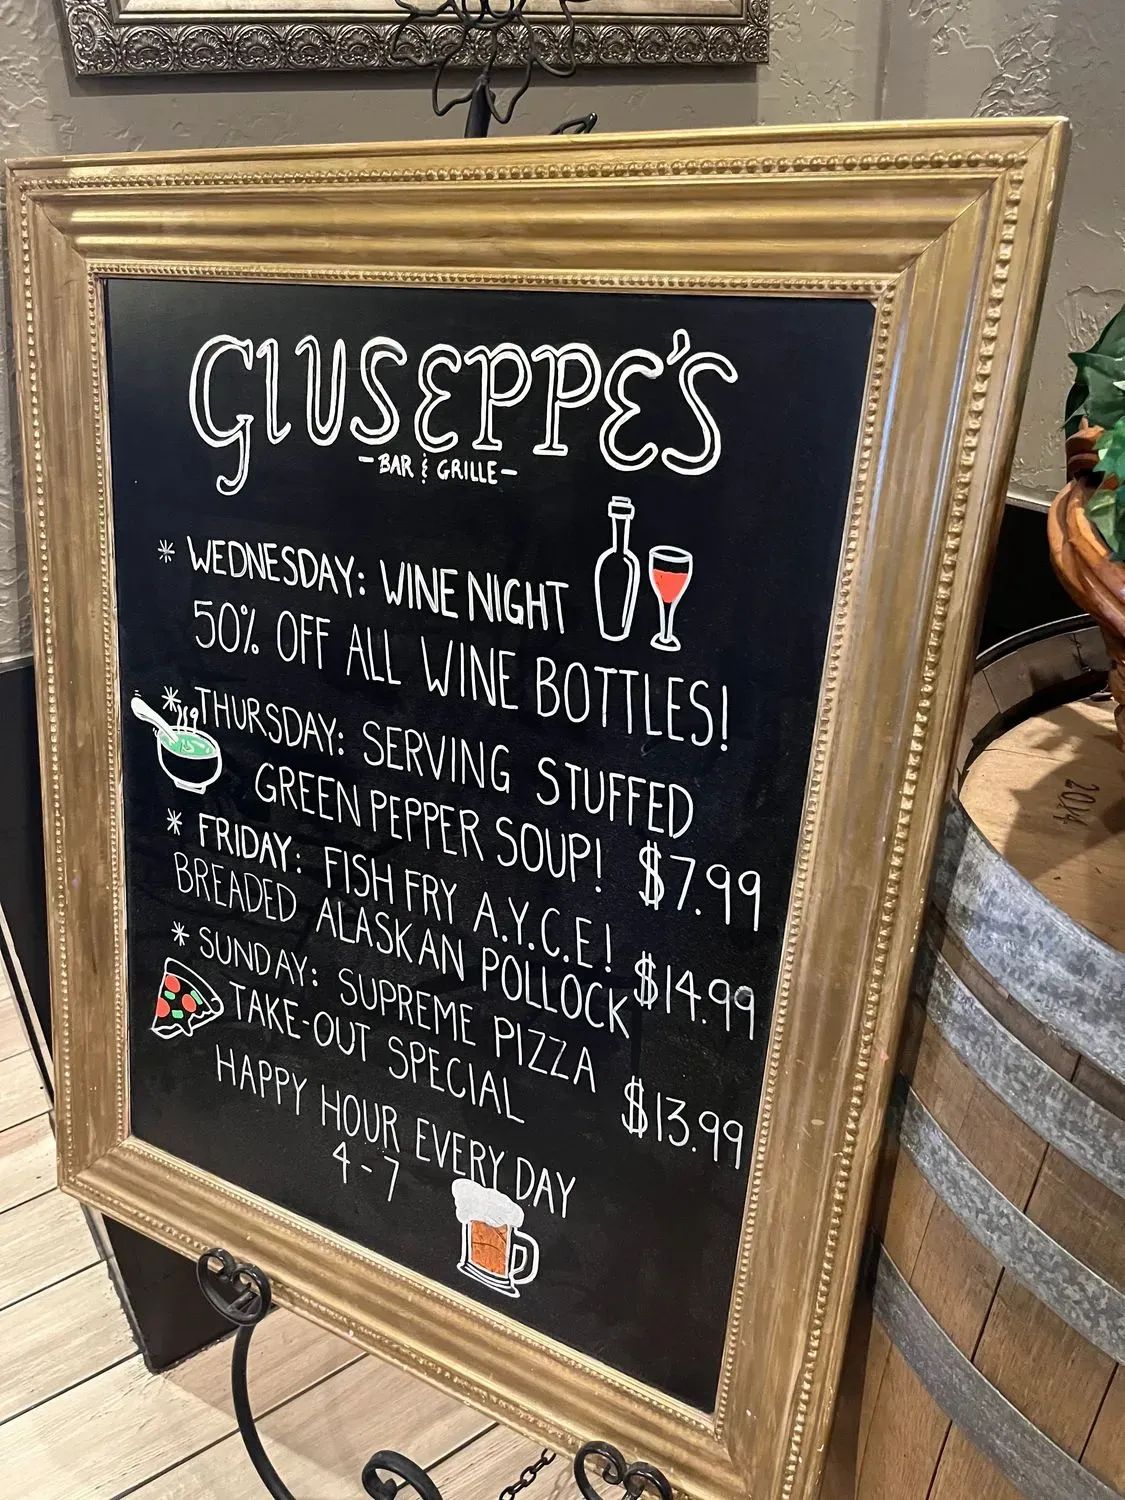 GIUSEPPE'S
-BAR & GRILLE-
* WEDNESDAY: WINE NIGHT
50% OFF ALL WINE BOTTLES!
* THURSDAY: SERVING STUFFED
GREEN PEPPER SOUP! $7.99
* FRIDAY: FISH FRY A.Y.C.E!
BREADED ALASKAN POLLOCK $14.99
* SUNDAY: SUPREME PIZZA
TAKE-OUT SPECIAL $13.99
HAPPY HOUR EVERY DAY
4-7
2014